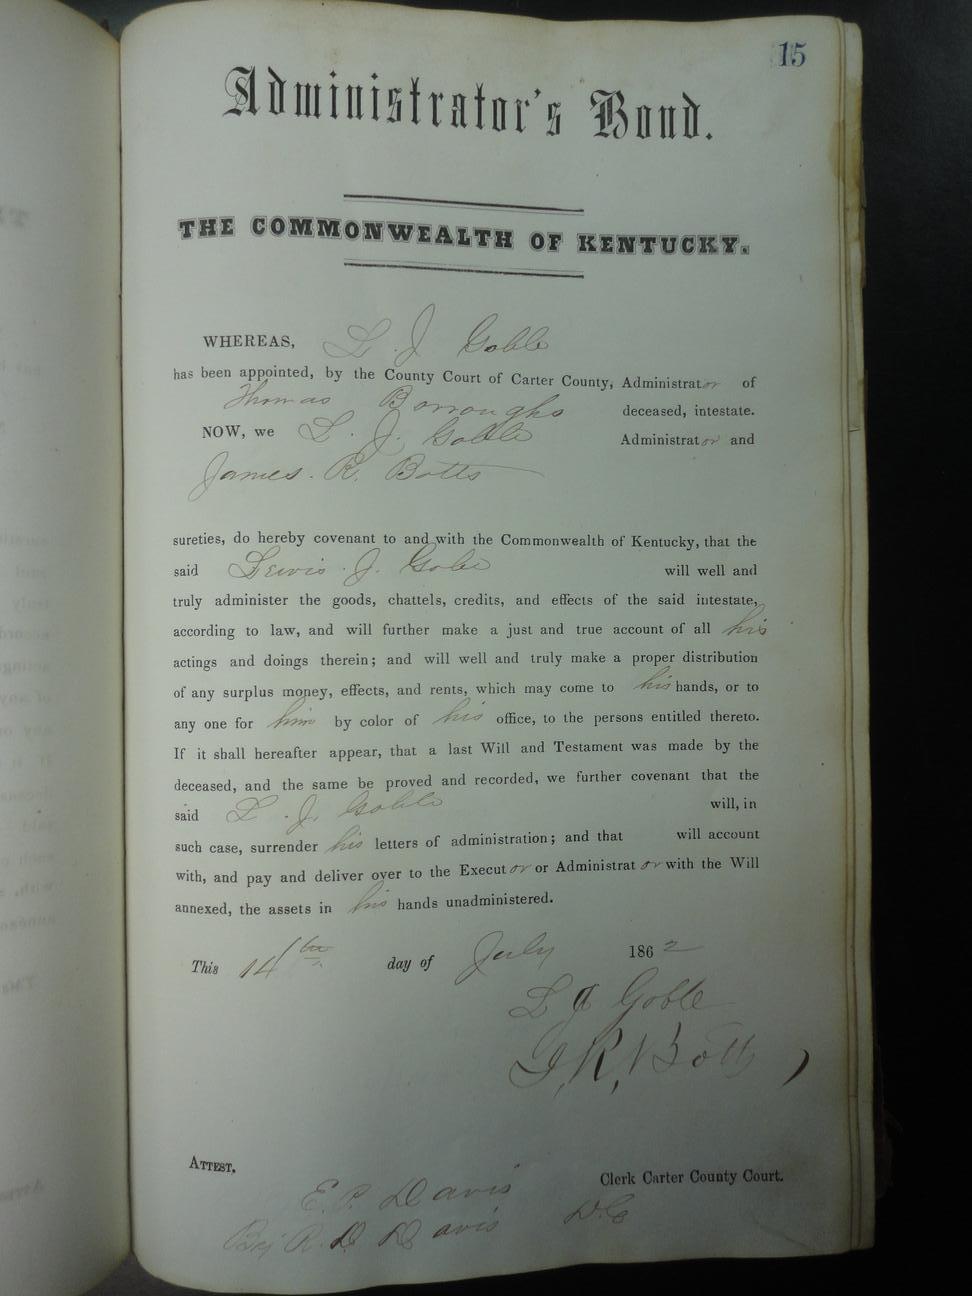 15
Administrator's Bond.
THE COMMONWEALTH OF KENTUCKY.
WHEREAS, L. J. Goble
has been appointed, by the County Court of Carter County, Administrator of
Thomas Borroughs deceased, intestate.
NOW, we L. J. Goble Administrator and
James. R. Botts
sureties, do hereby covenant to and with the Commonwealth of Kentucky, that the
said Lewis. J. Goble will well and
truly administer the goods, chattels, credits, and effects of the said intestate,
according to law, and will further make a just and true account of all his
actings and doings therein; and will well and truly make a proper distribution
of any surplus money, effects, and rents, which may come to his hands, or to
any one for him by color of his office, to the persons entitled thereto.
If it shall hereafter appear, that a last Will and Testament was made by the
deceased, and the same be proved and recorded, we further covenant that the
said L. J. Goble will, in
such case, surrender his letters of administration; and that will account
with, and pay and deliver over to the Executor or Administrator with the Will
annexed, the assets in his hands unadministered.
This 14th day of July 1862
L J Goble
J. R. Botts
ATTEST,
Clerk Carter County Court.
E. P. Davis
By R. D. Davis D.C